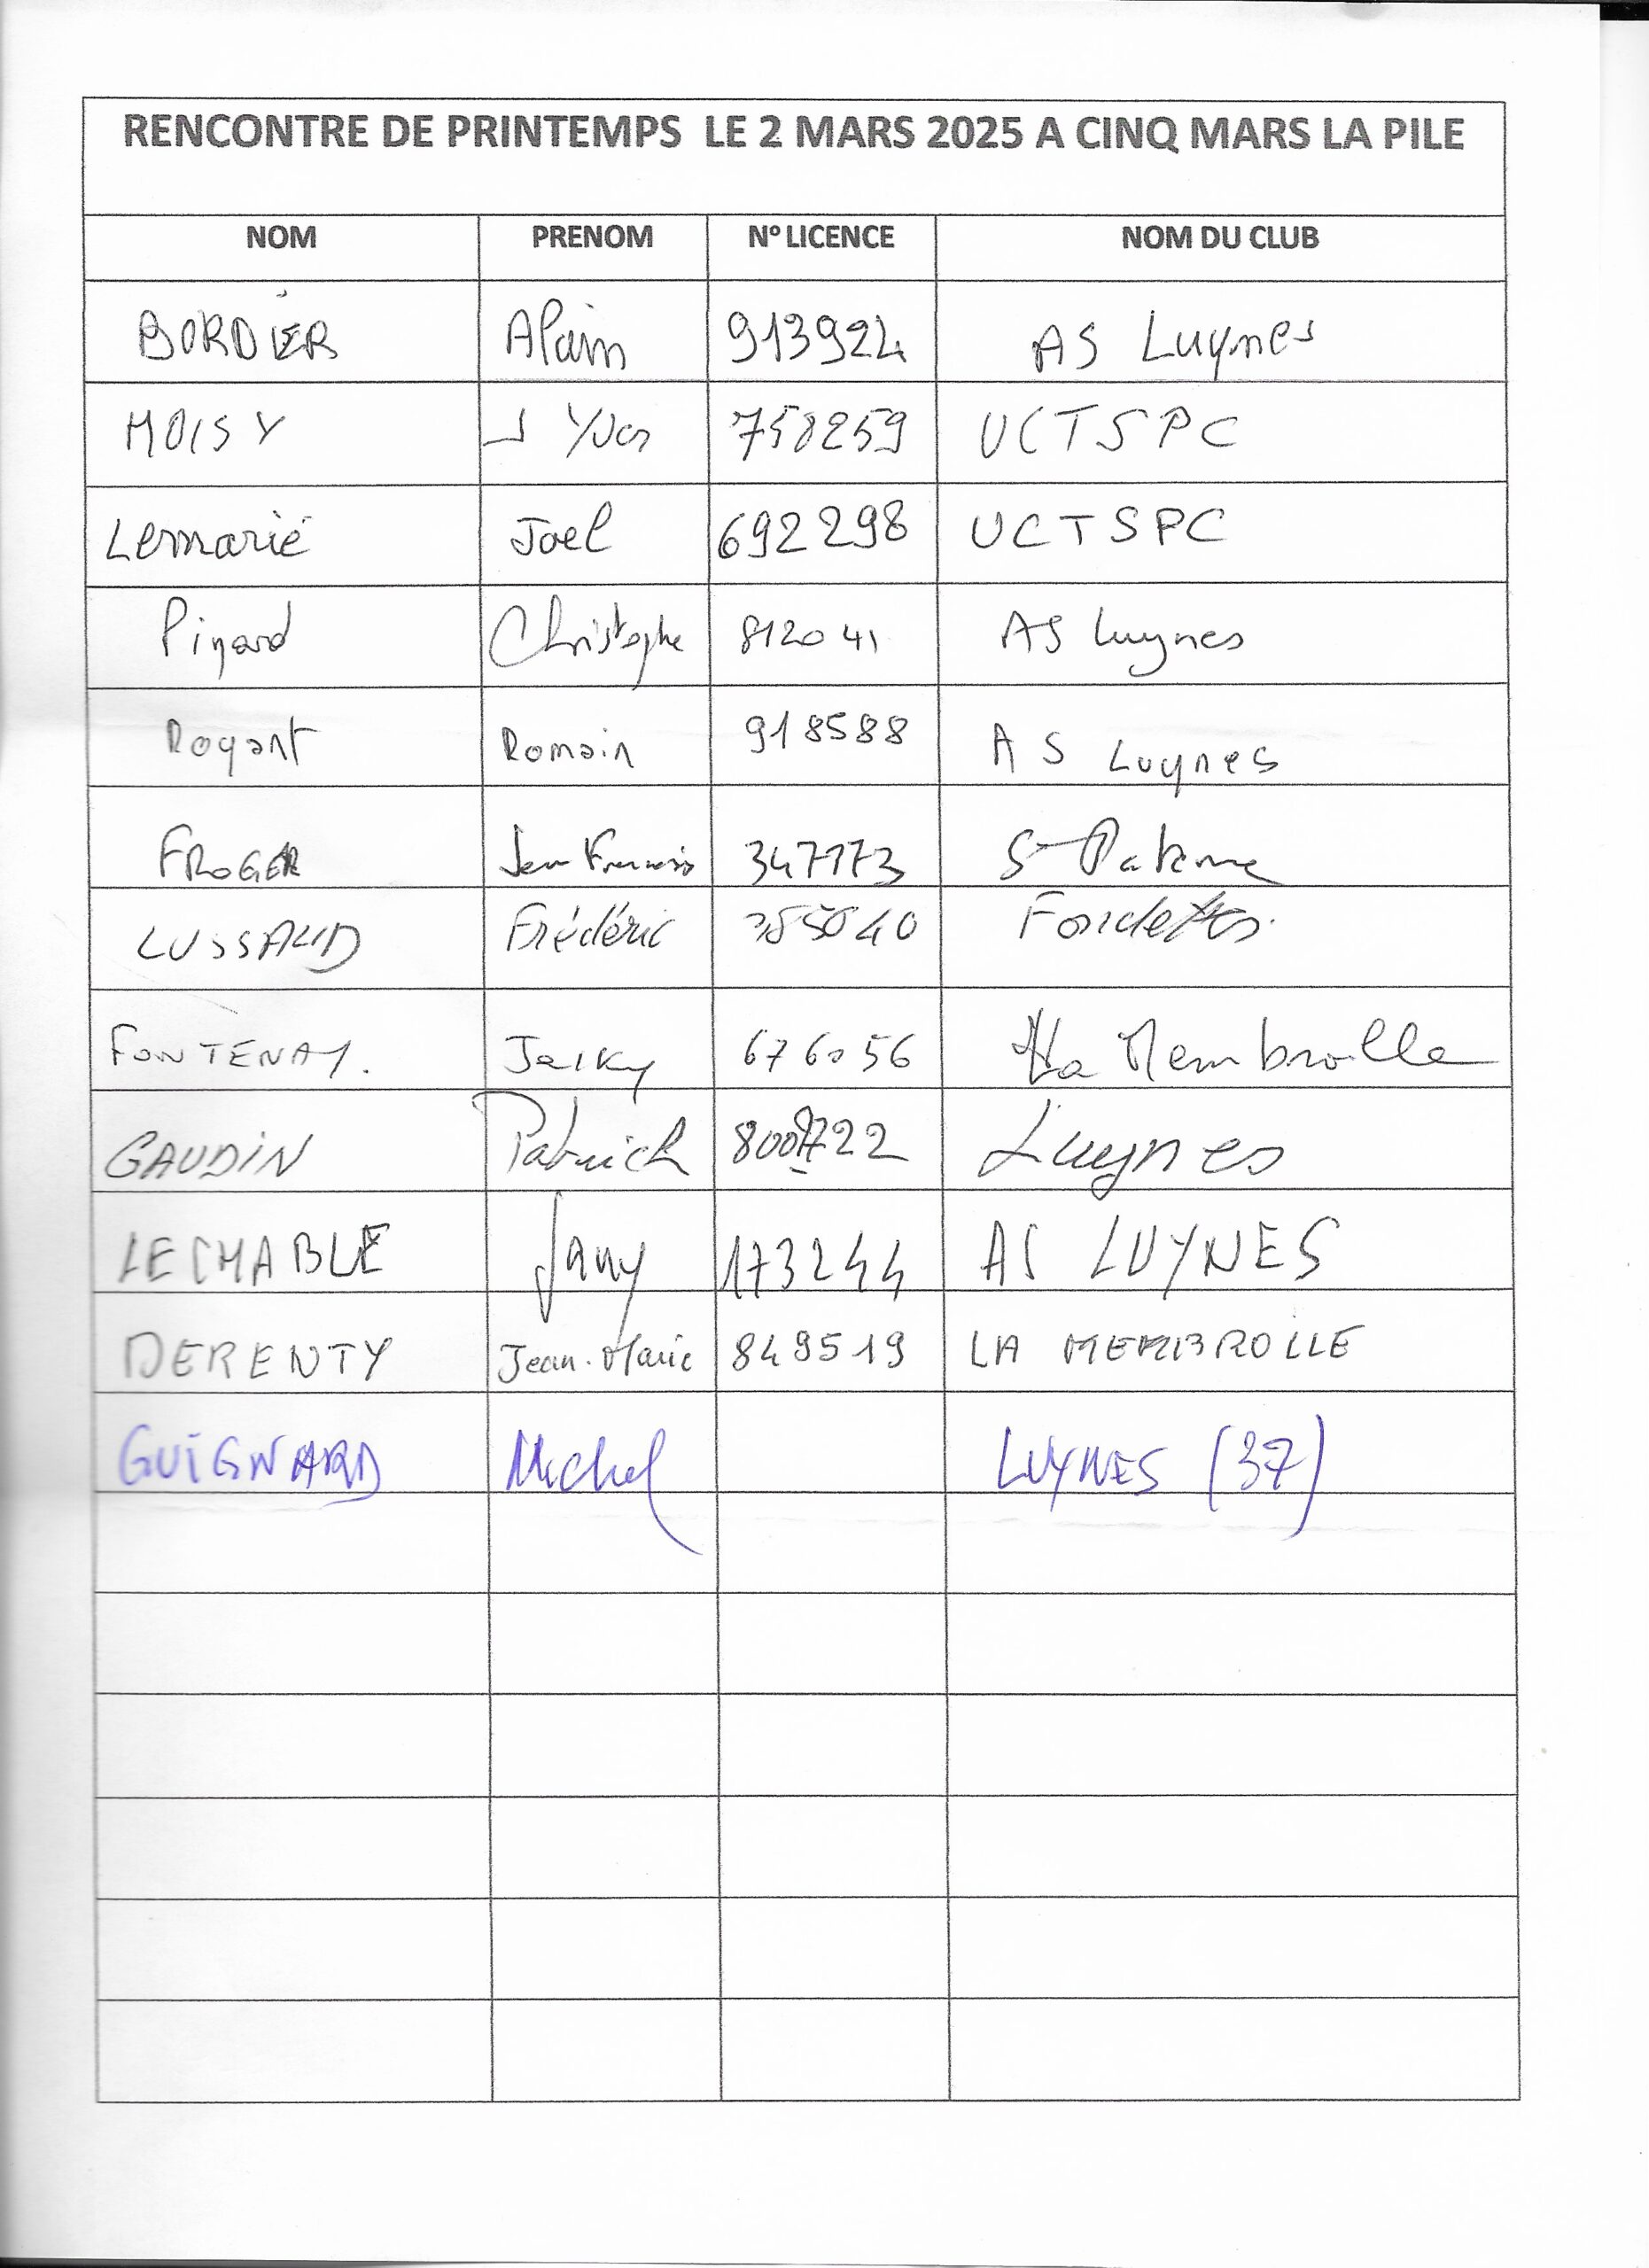 RENCONTRE DE PRINTEMPS LE 2 MARS 2025 A CINQ MARS LA PILE
NOM PRENOM N° LICENCE NOM DU CLUB
BORDIER Alain 913924 AS Luynes
MOISY J Yves 758259 UCTSPC
Lemarié Joel 692298 UCTSPC
Pinard Christophe 812041 AS Luynes
Rogant Romain 918588 AS Luynes
FROGER Jean Francois 347173 St Paterne
LUSSAUD Frédéric Fondettes
FONTENAY. Jacky 676056 La Membrolle
GAUDIN Patrick Luynes
LECHABLE Jany 173244 AS LUYNES
DERENTY Jean-Marie 849519 LA MEMBROLLE
GUIGNARD Michel LUYNES (37)